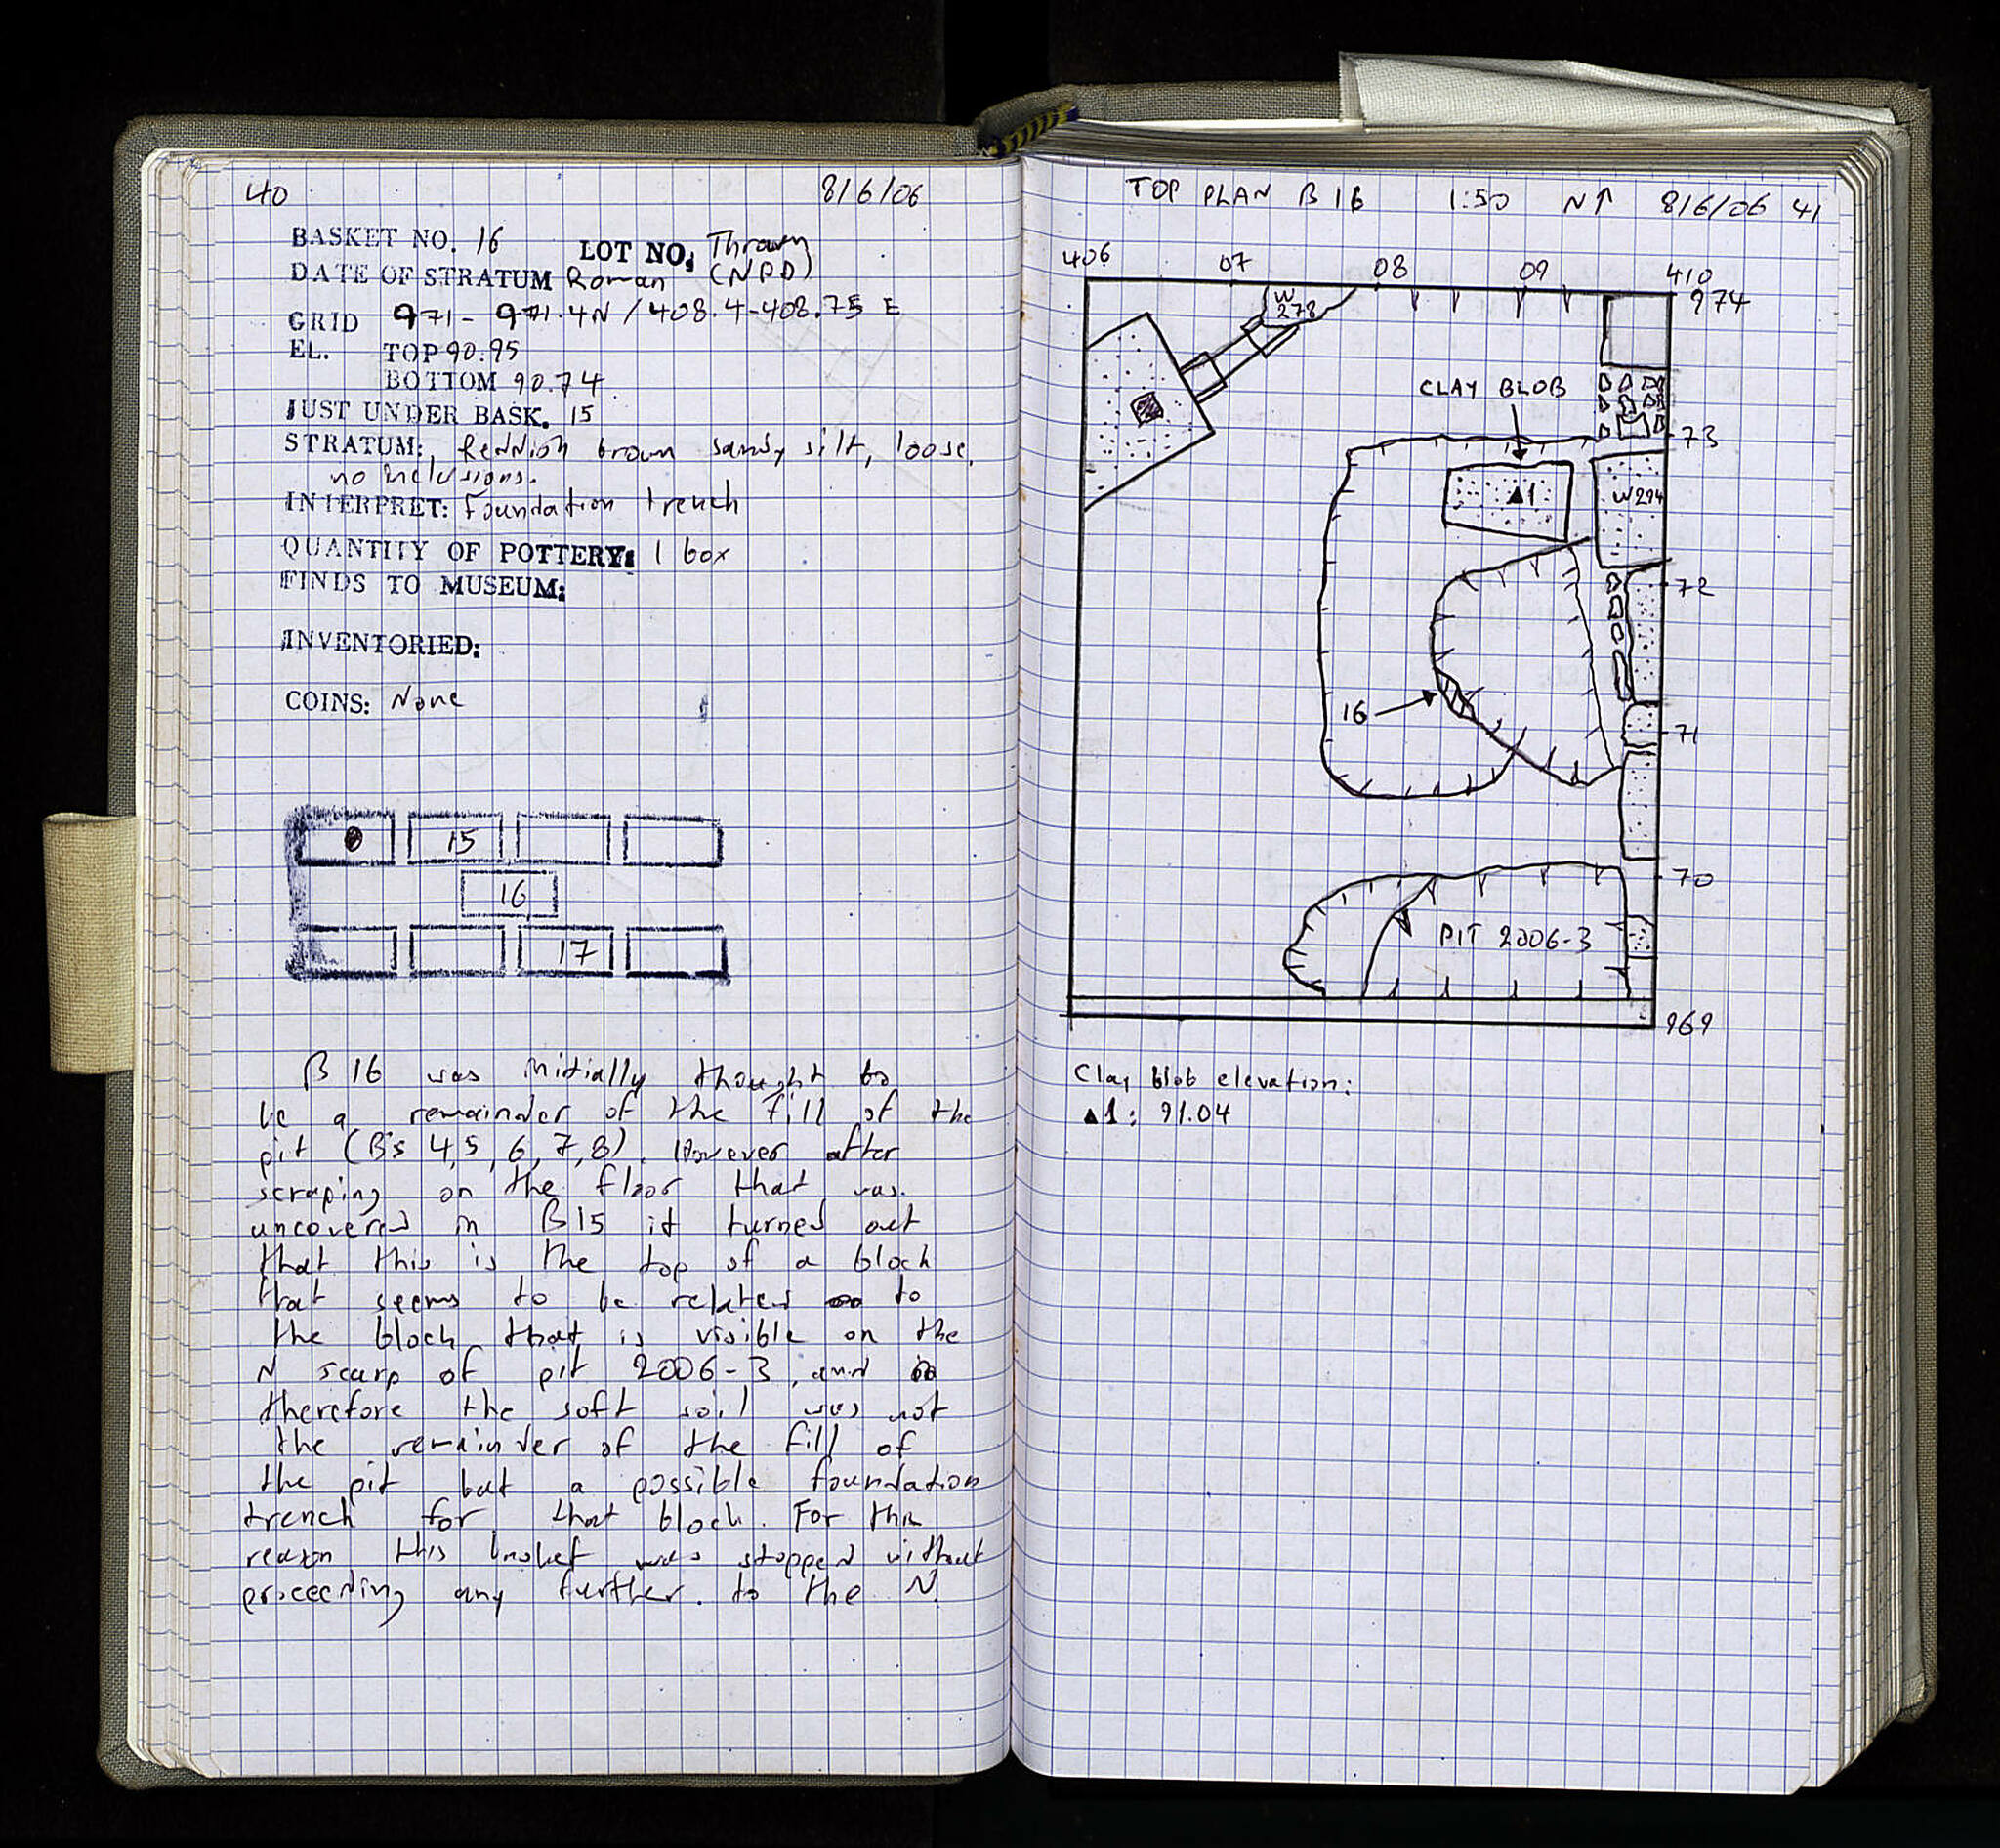 40 8/6/06
BASKET NO. 16 LOT NO: Thrown
DATE OF STRATUM Roman (NPD)
GRID 971-971.4N / 408.4-408.75 E
EL. TOP 90.95
BOTTOM 90.74
JUST UNDER BASK. 15
STRATUM: Reddish brown sandy silt, loose,
no inclusions.
INTERPRET: Foundation trench
QUANTITY OF POTTERY: 1 box
FINDS TO MUSEUM:
INVENTORIED:
COINS: None
15
16
17
B 16 was initially thought to
be a remainder of the fill of the
pit (B's 4,5,6,7,8). However after
scraping on the floor that was
uncovered in B15 it turned out
that this is the top of a block
that seems to be related to
the block that is visible on the
N scarp of pit 2006-3, and
therefore the soft soil was not
the remainder of the fill of
the pit but a possible foundation
trench for that block. For this
reason this basket was stopped without
proceeding any further. to the N.
TOP PLAN B 16 1:50 N↑ 8/6/06 41
406 07 08 09 410
974
W
278
CLAY BLOB
73
▲1
W294
72
16
71
70
PIT 2006-3
969
Clay blob elevation:
▲1: 91.04